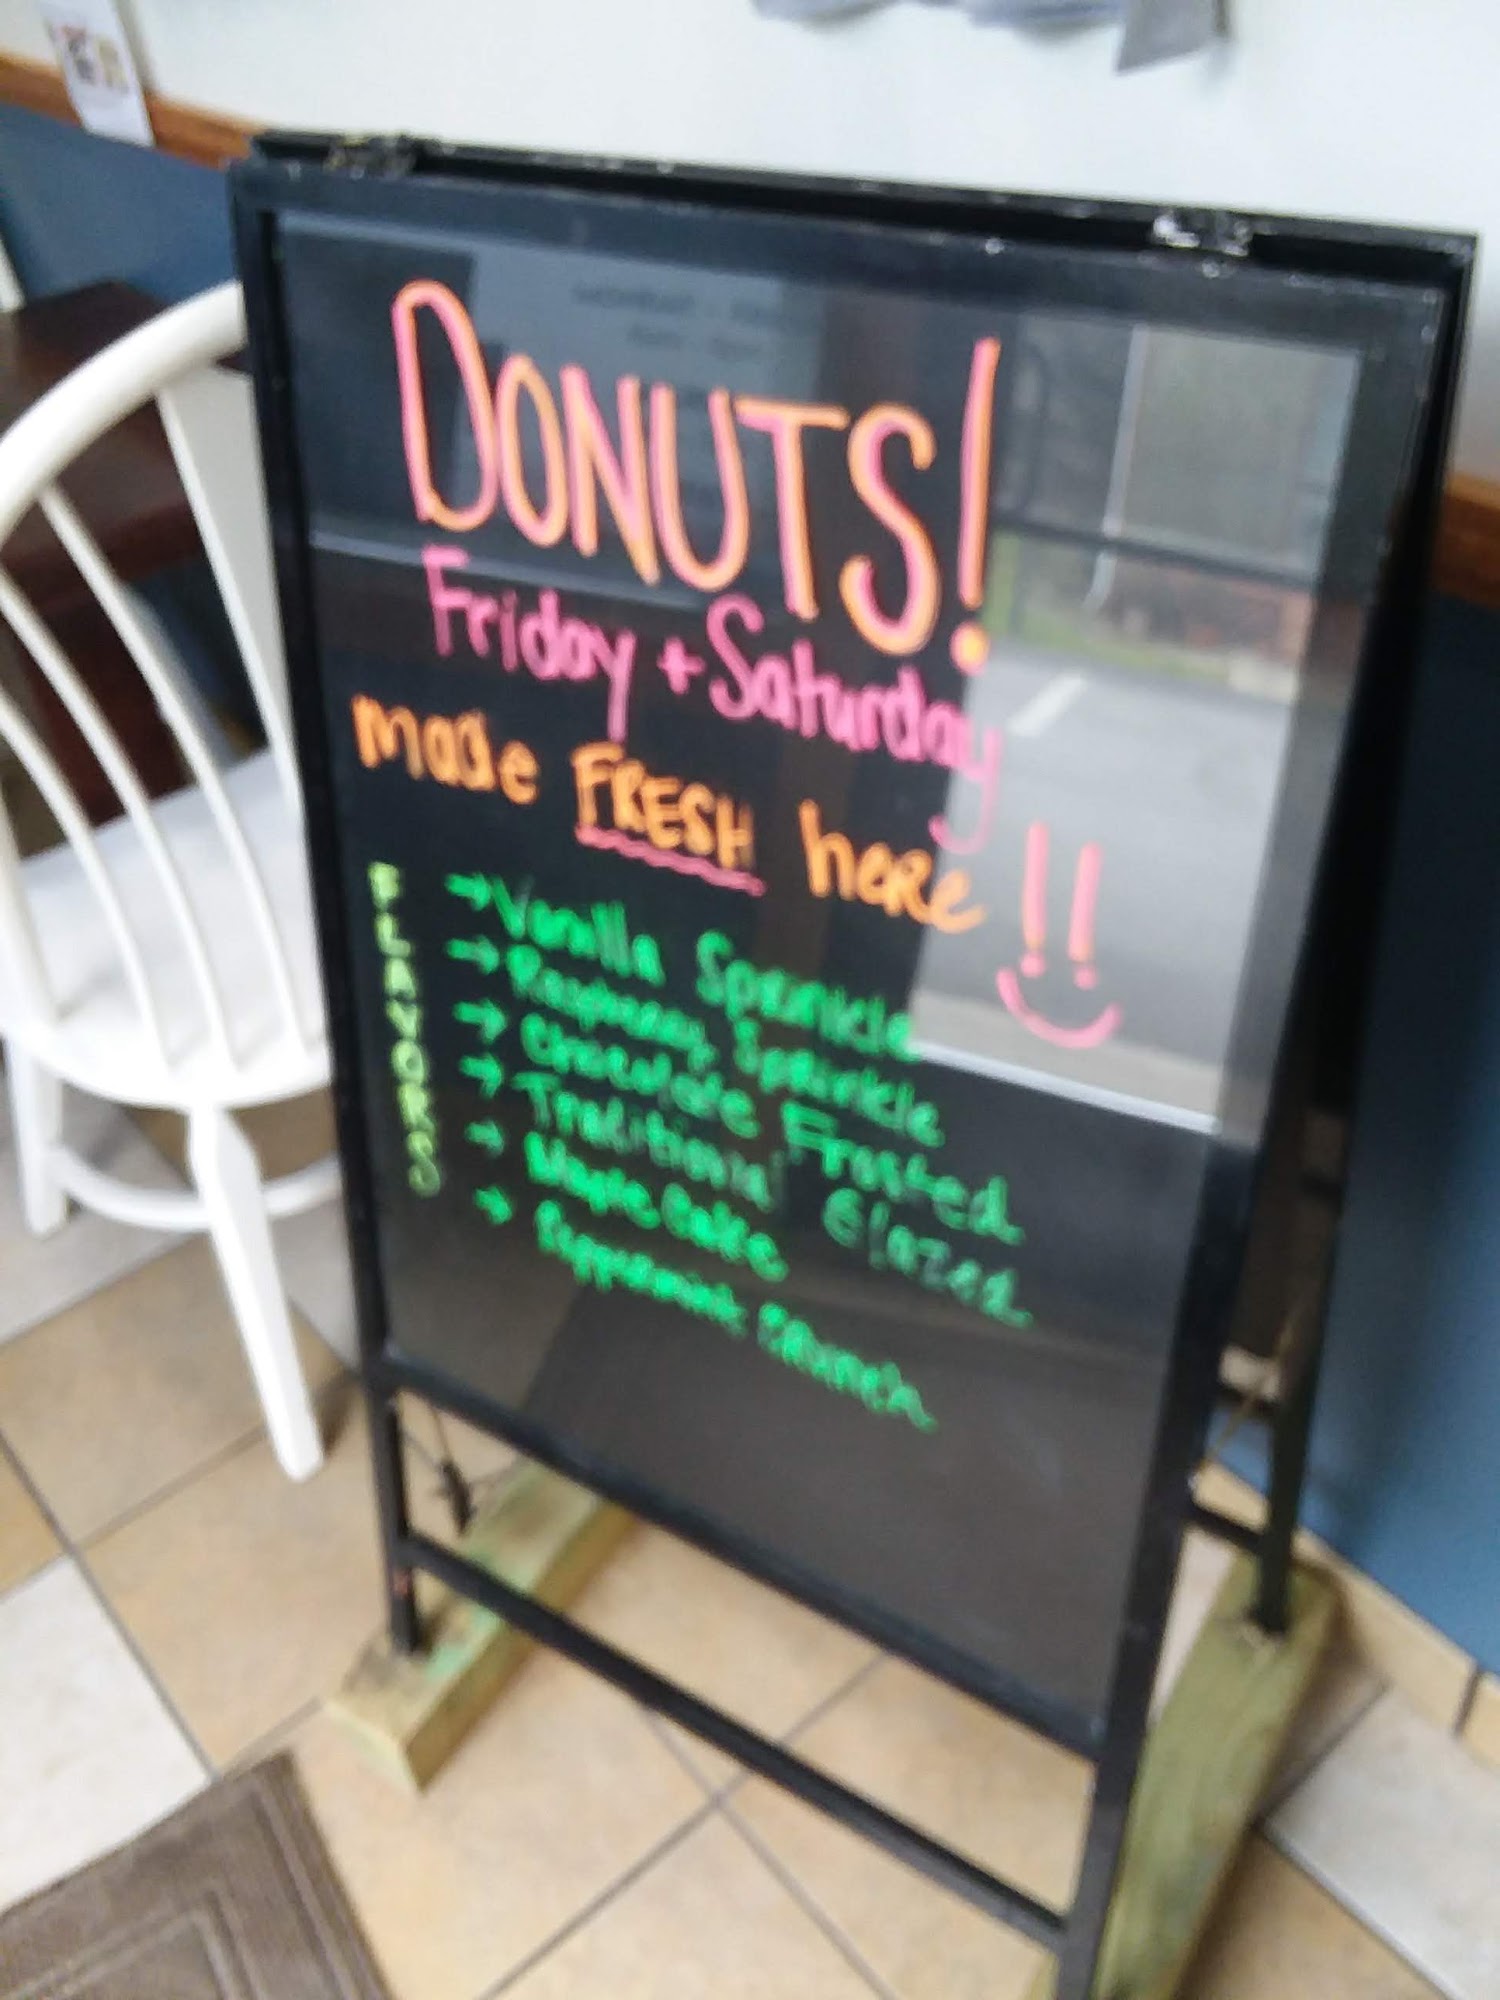 DONUTS!
Friday + Saturday
made FRESH here !!
FLAVORS
→ Vanilla Sprinkle
→ Raspberry Sprinkle
→ Chocolate Frosted
→ Traditional Glazed
→ Maple Cake
→ Peppermint Crunch